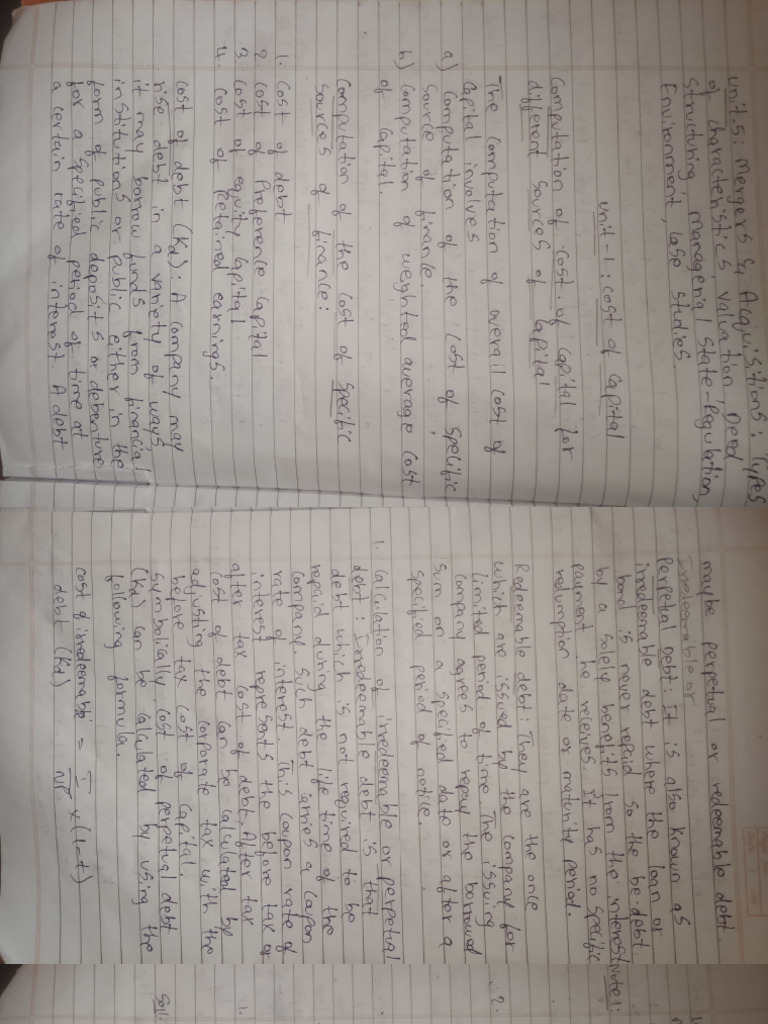 unit 5: Mergers & Acquisitions: Types
of characteristics, valuation, Deed
structuring, managerial State-Regulation,
Environment, case studies
unit-1: cost of capital
Computation of cost of capital for
different sources of capital
The computation of overall cost of
capital involves
a) computation of the cost of specific
source of finance.
b) computation of weighted average cost
of capital.
Computation of the cost of specific
sources of finance:
1. Cost of debt
2. Cost of Preference capital
3 Cost of equity capital
4. Cost of Retained earnings.
Cost of debt (Kd): A company may
rise debt in a variety of ways,
it may borrow funds from financial
institutions or public either in the
form of public deposits or debenture
for a specified period of time at
a certain rate of interest. A debt
maybe perpetual or redeemable debt.
Irredeemable or
Perpetual Debt: It is also known as
irredeemable debt where the loan or
bond is never repaid so the be debt
by a solely benefits from the interest
payment he receives. It has no specific
redumption date or maturity period.
Redeemable debt: They are the once
which are issued by the company for
limited period of time. The issuing
company agrees to repay the borrowed
sum on a specified date or after a
specified period of notice.
1. Calculation of irredeemable or perpetual
debt: Irredeemable debt is that
debt which is not required to be
repaid during the life time of the
company. Such debt carries a coupon
rate of interest. This coupon rate of
interest represents the before tax or
after tax cost of debt. After tax
cost of debt can be calculated by
adjusting the corporate tax with the
before tax cost of capital.
symbolically cost of perpetual debt
(Kd) can be calculated by using the
following formula
cost of irredeemable debt (Kd) = I/NP × (1-t)
Note 1:
2.
1.
Sol: